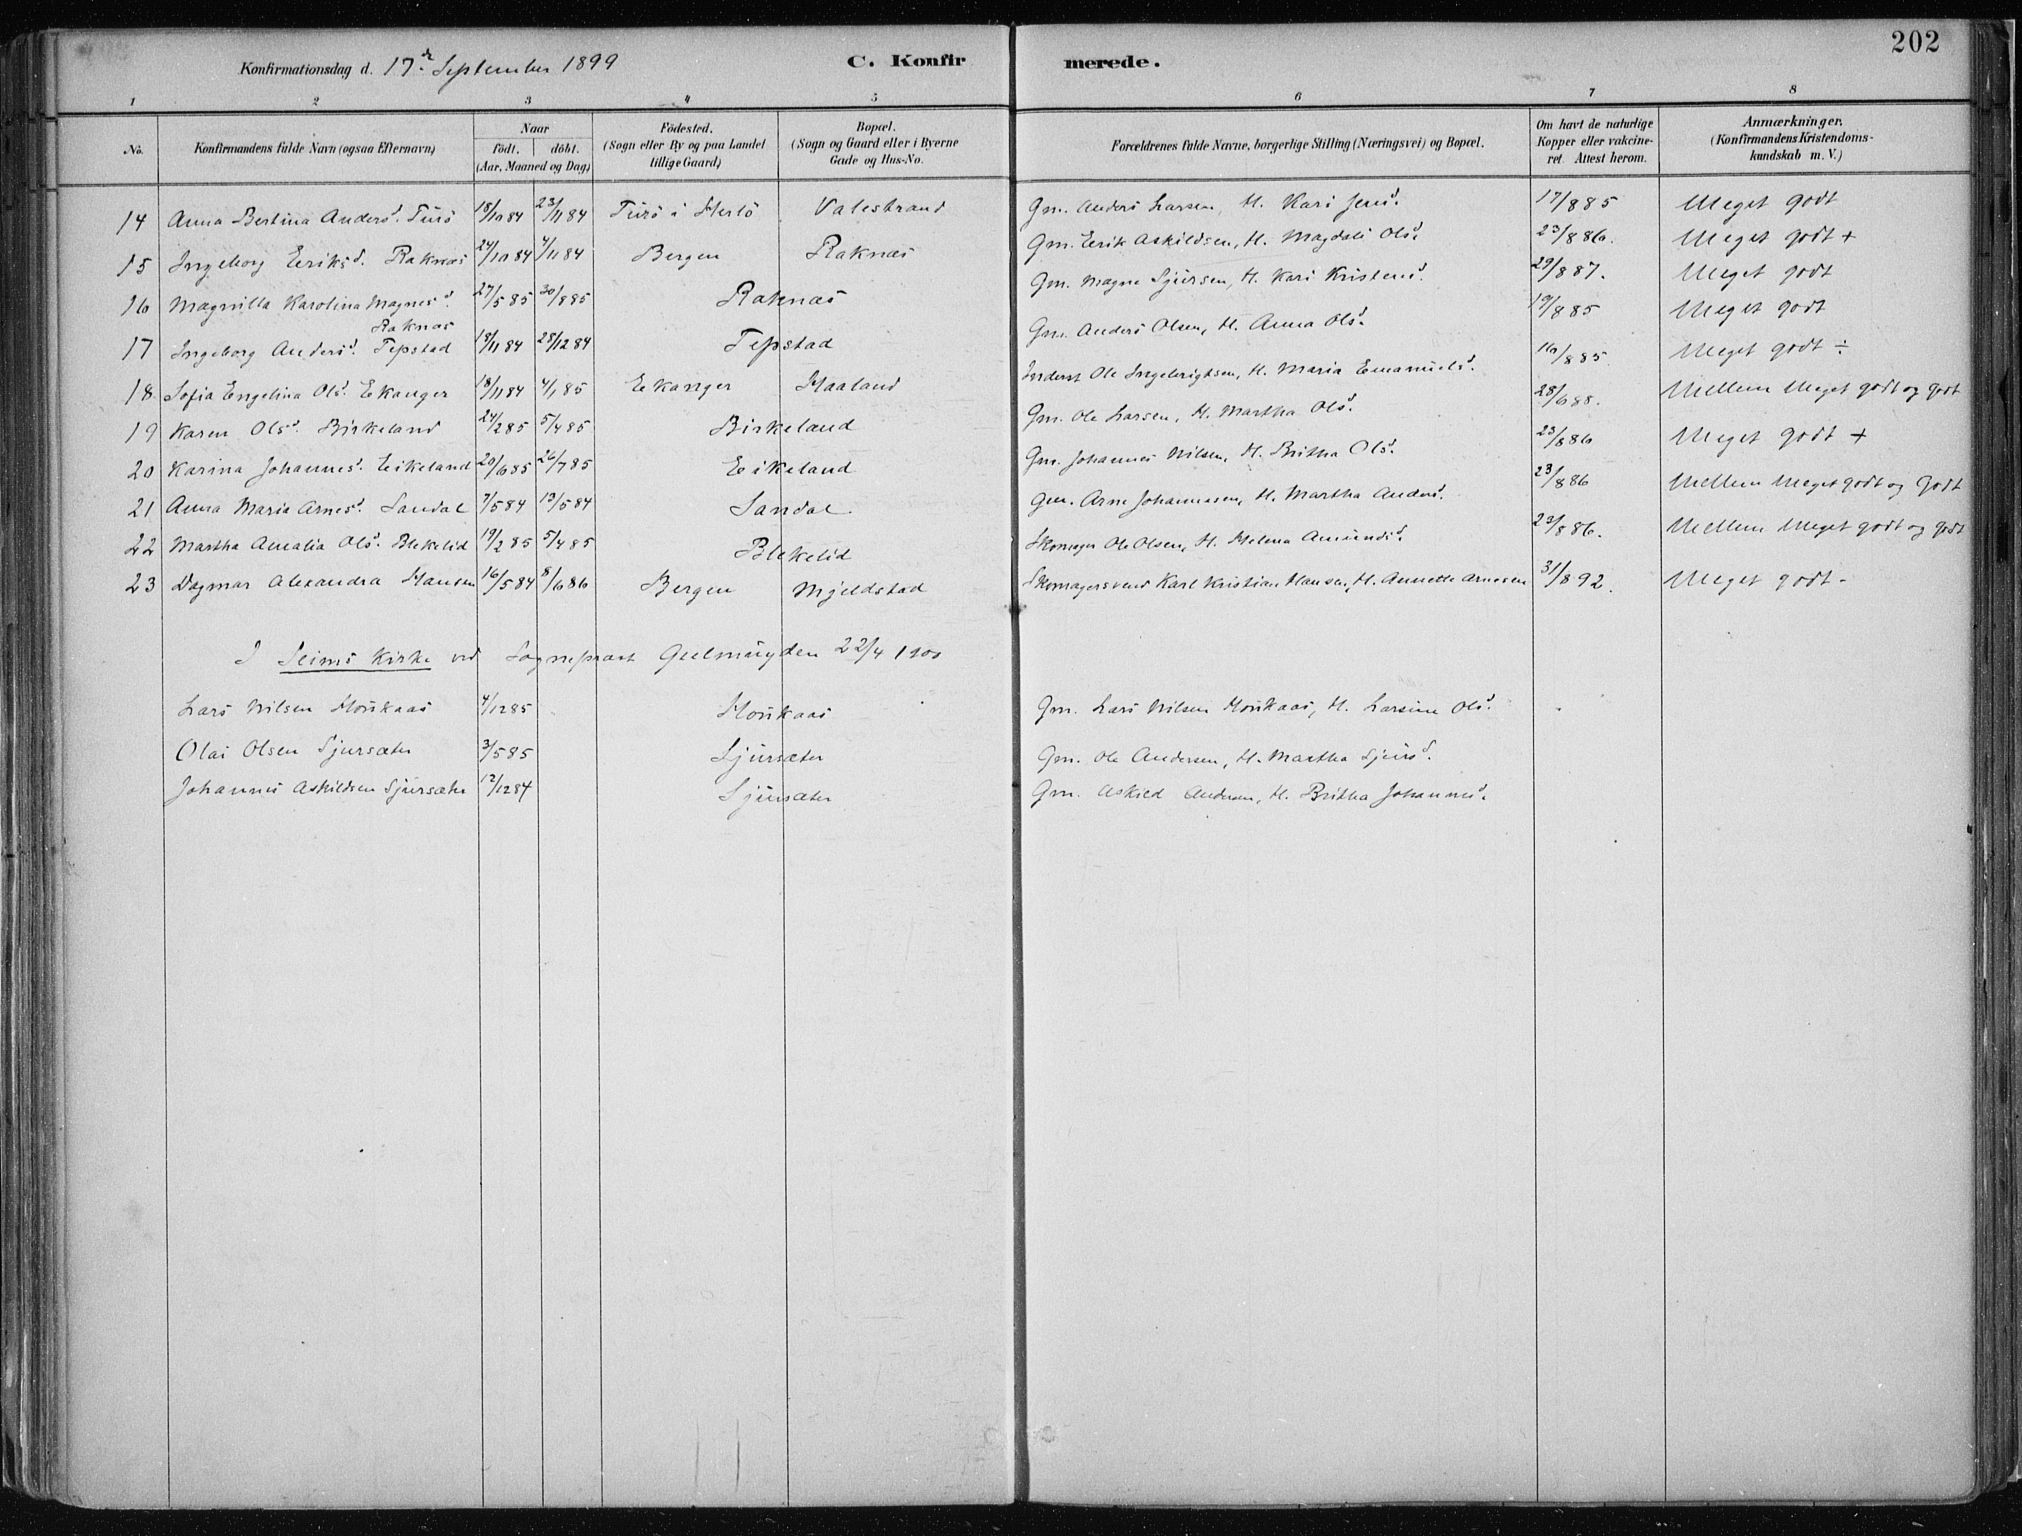 202
Konfirmationsdag d. 17de September 1899 C. Konfirmerede.
1 2 3 4 5 6 7 8
No. Konfirmandens fulde Navn (ogsaa Efternavn) Naar Födt. döbt. (Aar, Maaned og Dag) Födested. (Sogn eller By og paa Landet tillige Gaard) Bopæl. (Sogn og Gaard eller i Byerne Gade og Hus-No. Forældrenes fulde Navne, borgerlige Stilling (Næringsvei) og Bopæl. Om havt de naturlige Kopper eller vakcineret. Attest herom. Anmærkninger. (Konfirmandens Kristendomskundskab m. V.)
14 Anna Bertina Andersd. Turö 18/10 84 23/11 84 Turö i Herlö Valestrand Gm. Anders Larsen, H. Kari Jensd. 17/8 85 Meget godt
15 Ingeborg Eeriksd. Raknæs 24/10 84 4/11 84 Bergen Raknæs Gm. Eerik Askildsen, H. Magdeli Olsd. 23/8 86. Meget godt +
16 Magnilla Karolina Magnesd. Raknæs 27/5 85 30/8 85 Raknæs Gm. Magne Sjursen, H. Kari Kristensd. 29/8 87. Meget godt
17 Ingeborg Andersd. Tepstad 19/11 84 28/12 84 Tepstad Gm. Anders Olsen, H. Anna Olsd. 19/8 85 Meget godt
18. Sofia Engelina Olsd. Ekanger 18/11 84 4/1 85 Eekanger Haaland Inderst Ole Ingebrigtsen, H. Maria Emanuelsd. 16/8 85. Meget godt ÷
19 Karen Olsd. Birkeland 24/2 85 5/4 85 Birkeland Gm. Ole Larsen, H. Martha Olsd. 28/6 88. Mellem Meget godt og godt
20 Karina Johannesd. Eikeland 20/6 85 26/7 85 Eeikeland Gm. Johannes Nilsen, H. Britha Olsd. 23/8 86 Meget godt +
21 Anna Maria Arnesd. Sandal 7/5 84 13/5 84 Sandal. Gm. Arne Johannesen, H. Martha Andersd. 23/8 86 Mellem Meget godt og Godt
22 Martha Amalia Olsd. Blekelid 19/2 85 5/4 85 Blekelid Skomager Ole Olsen, H. Helena Amundsd. 23/8 86. Mellem Meget godt og godt
23 Dagmar Alexandra Hansen 16/5 84 8/6 86 Bergen Mjeldstad Skomagersvend Karl Kristian Hansen, H. Annette Arnesen 31/8 92. Meget godt -
I Seims Kirke ved Sogneprest Geelmuyden 22/4 1900
Lars Nilsen Houkaas 4/12 85 Houkaas Gm. Lars Nilsen Houkaas, H. Larsine Olsd.
Olai Olsen Sjursæter 3/5 85 Sjursæter Gm. Ole Andersen, H. Martha Sjursd.
Johannes Askildsen Sjursæter 12/12 84 Sjursæter Gm. Askild Andersen, H. Britha Johannesd.